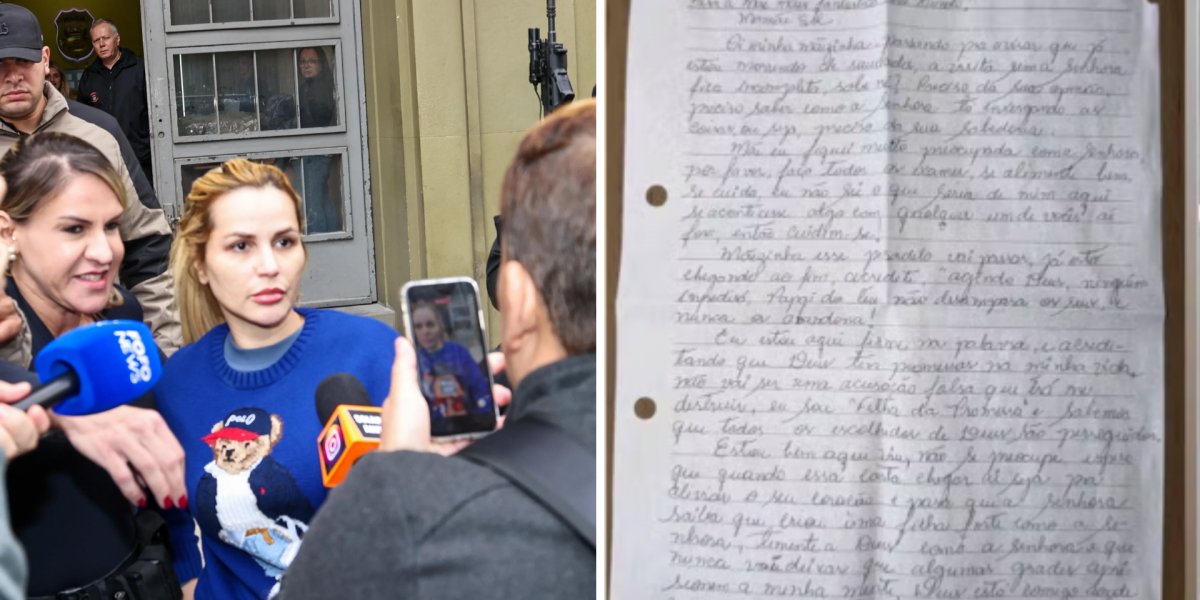 FOFO
NEWS
POLO
Mamãe Eu
Oi minha mãezinha passando pra avisar que já
estou morrendo de saudades, a visita sem a senhora
fica incompleta, sabe né? Preciso da sua opinião,
preciso saber como a senhora tá enxergando as
coisas, ou seja, preciso da sua sabedoria.
Mãe eu fiquei muito preocupada com a senhora,
por favor, faça todos os exames, se alimente bem,
se cuida, eu não sei o que seria de mim aqui
se acontecesse algo com qualquer um de vocês aí
fora, então cuidem-se.
Mãezinha esse período vai passar, já está
chegando ao fim, acredite "agindo Deus, ninguém
impedirá, Papai do Céu não desampara os seus, e
nunca os abandona!
Eu estou aqui firme na palavra, e acredi-
tando que Deus tem promessas na minha vida,
não vai ser uma acusação falsa que irá me
destruir, eu sou "Filha da Promessa" e sabemos
que todos os escolhidos de Deus são perseguidos.
Estou bem aqui viu, não se preocupe espero
que quando essa carta chegar aí seja pra
alissar o seu coração e para que a senhora
saiba que criou uma filha forte como a se-
nhora, temente a Deus como a senhora e que
nunca vai deixar que algumas grades apri
sionem a minha mente, Deus está comigo